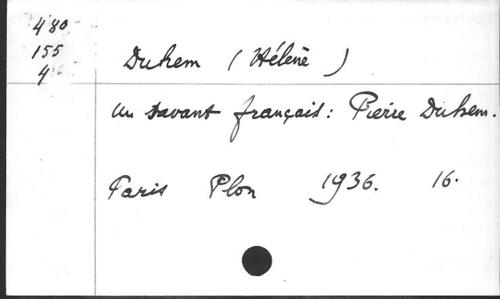 480
155
4
Duhem (Hélène)
Un savant français: Pierre Duhem.
Paris Plon 1936. 16.